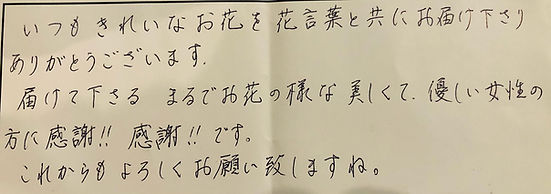 いつもきれいなお花を花言葉と共にお届け下さり
ありがとうございます.
届けて下さる まるでお花の様な美しくて、優しい女性の
方に感謝!! 感謝!! です。
これからもよろしくお願い致しますね。